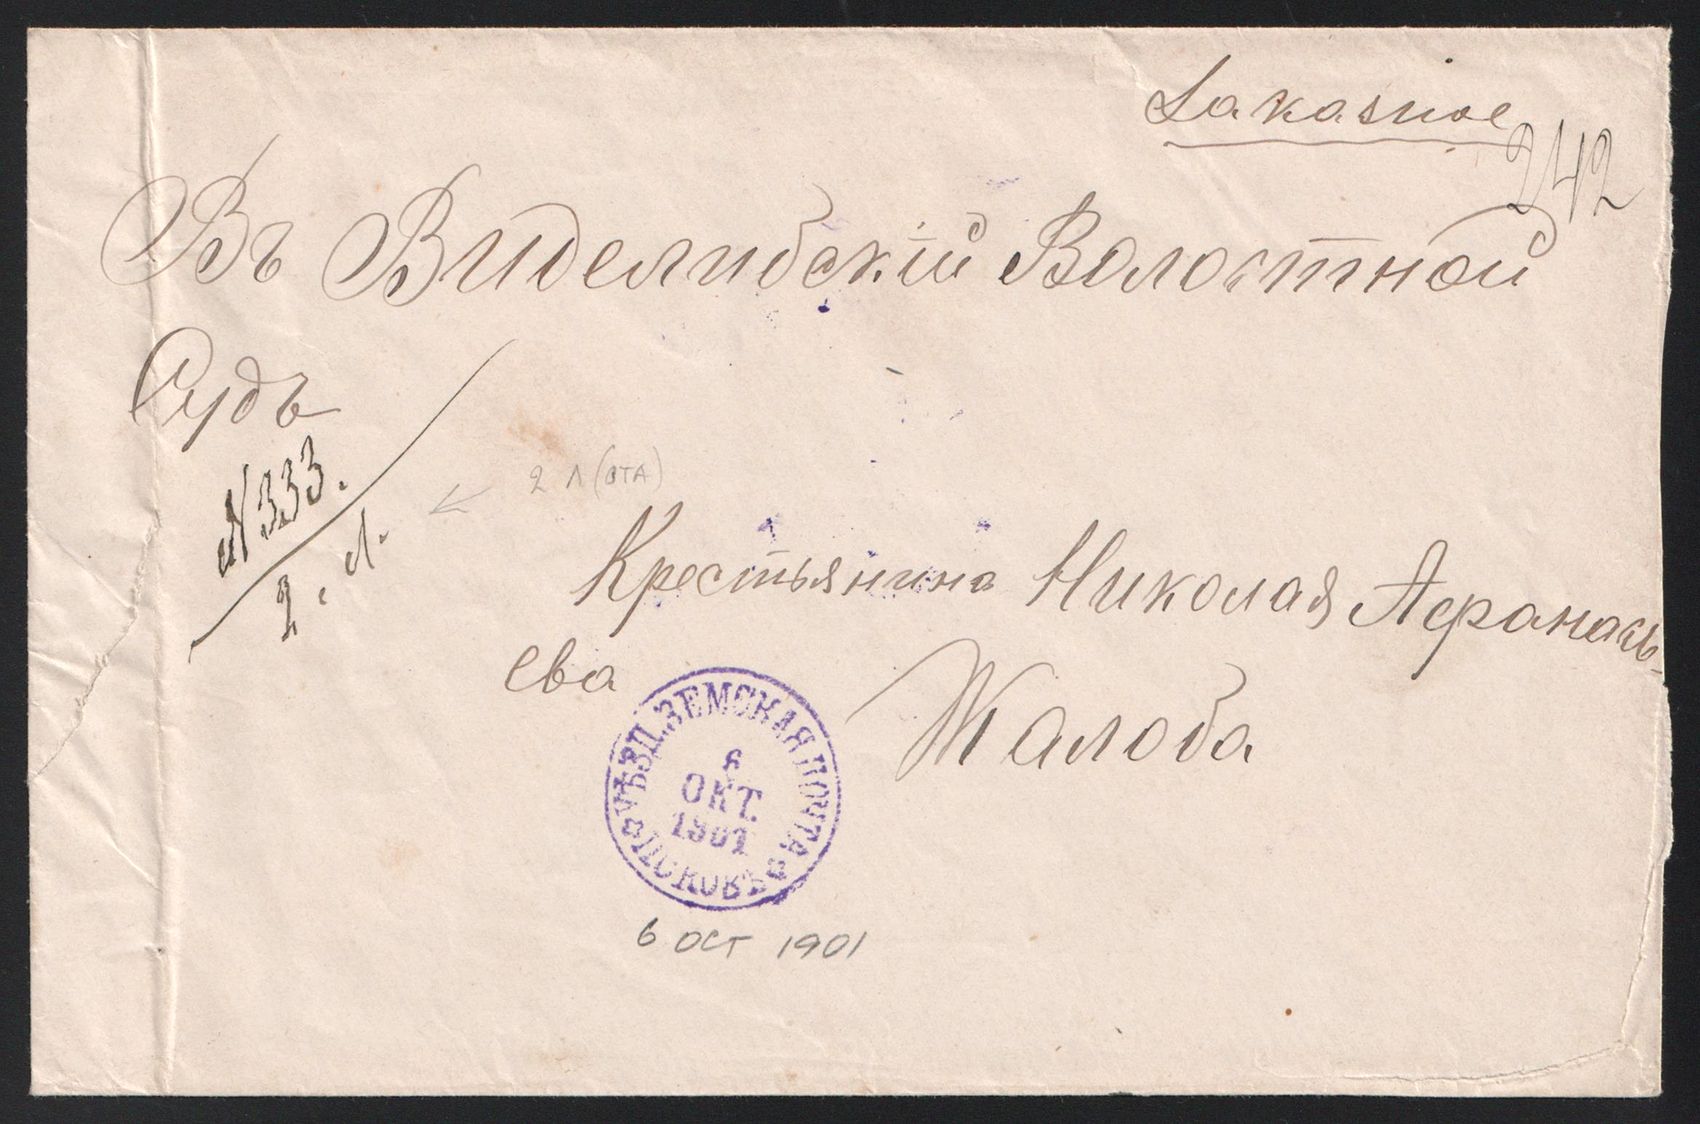 Заказное
242
Въ Виделибскій Волостной
Судъ
№ 333.
2. л.
2 Л(ОТА)
Крестьянина Николая Афанась-
ева
Жалоба
УѢЗД. ЗЕМСКАЯ ПОЧТА
6
ОКТ.
1901
ПСКОВЪ
6 OCT 1901